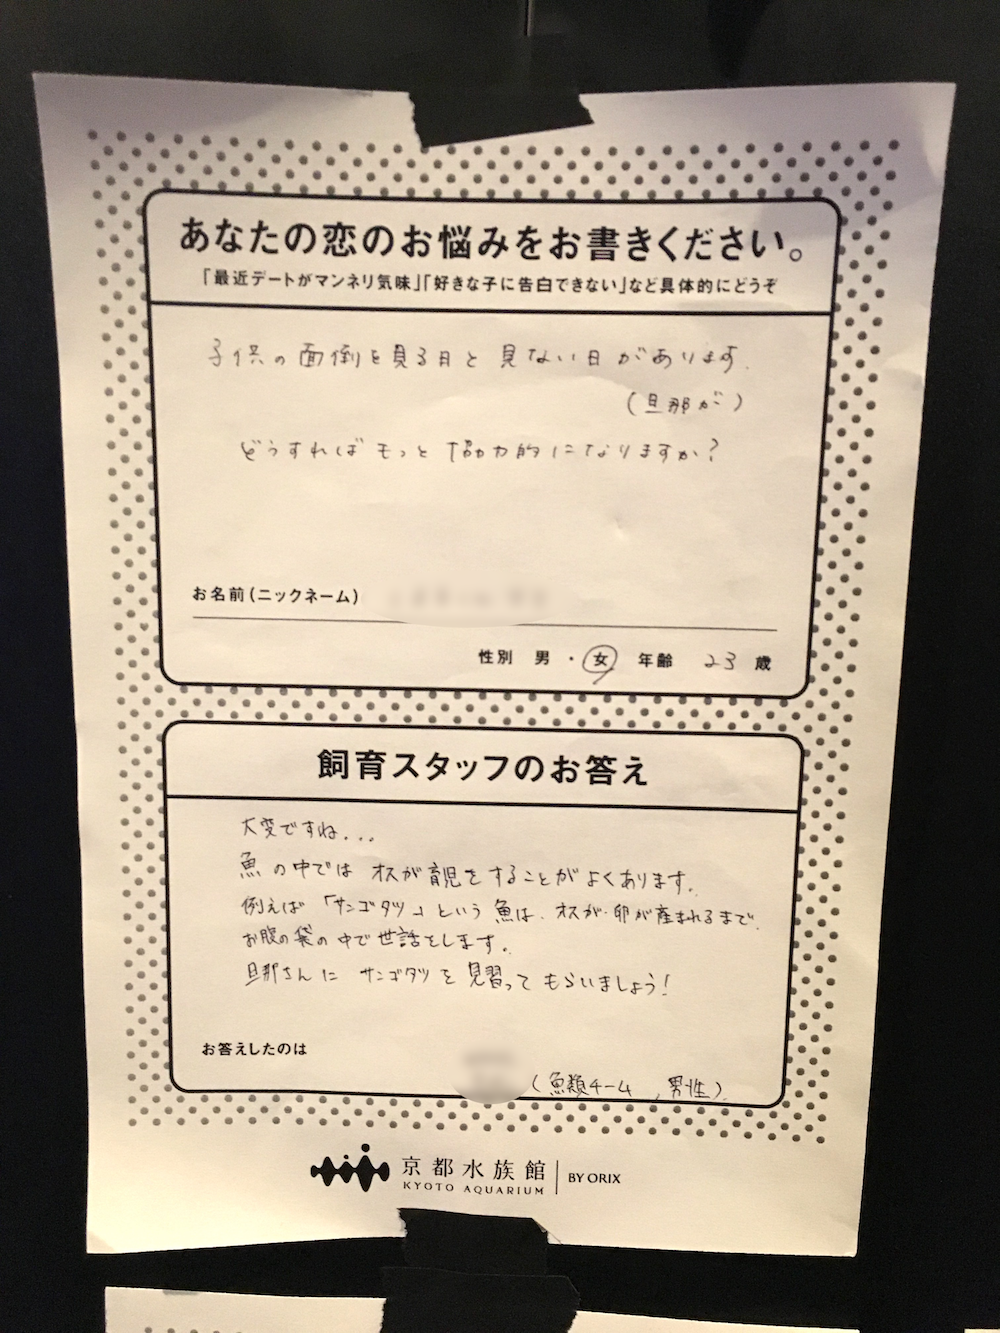 あなたの恋のお悩みをお書きください。
「最近デートがマンネリ気味」「好きな子に告白できない」など具体的にどうぞ
子供の面倒を見る日と見ない日があります.
(旦那が)
どうすればもっと協力的になりますか?
お名前(ニックネーム)
性別 男・女 年齢 23 歳
飼育スタッフのお答え
大変ですね...
魚の中ではオスが育児をすることがよくあります。
例えば「サンゴタツ」という魚は、オスが卵が産まれるまで、
お腹の袋の中で世話をします。
旦那さんにサンゴタツを見習ってもらいましょう!
お答えしたのは
(魚類チーム、男性)
京都水族館
KYOTO AQUARIUM
BY ORIX